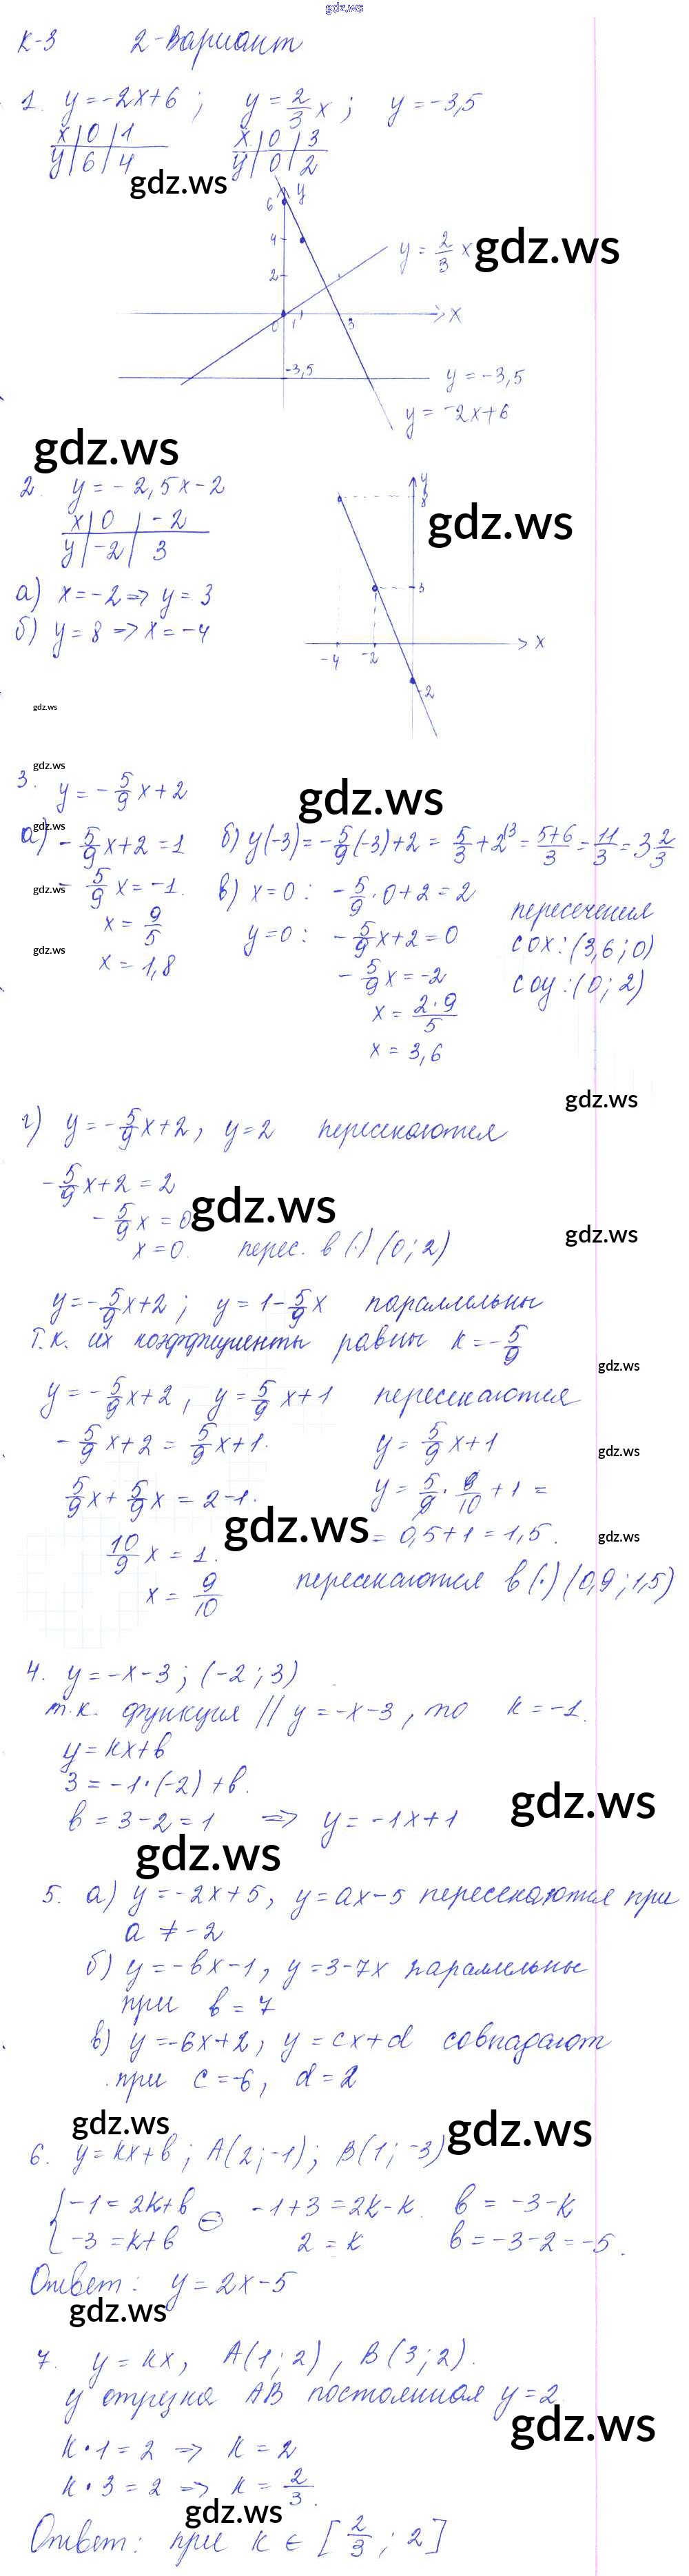 gdz.ws
К-3 2-Вариант
1. y=-2x+6 ; y=2/3 x ; y=-3,5
x | 0 | 1
y | 6 | 4
x | 0 | 3
y | 0 | 2
gdz.ws
y
6
4
2
0 1 3 x
-3,5
y=2/3 x
gdz.ws
y=-3,5
y=-2x+6
gdz.ws
2. y=-2,5x-2
x | 0 | -2
y | -2 | 3
а) x=-2 => y=3
б) y=8 => x=-4
y
8
3
-4 -2 x
-2
gdz.ws
gdz.ws
gdz.ws
3. y=-5/9 x+2
gdz.ws
а) -5/9 x+2=1
gdz.ws
-5/9 x=-1.
gdz.ws
x=9/5
gdz.ws
x=1,8
б) y(-3)=-5/9(-3)+2=5/3+2^(3=(5+6)/3=11/3=3 2/3
в) x=0: -5/9·0+2=2
y=0: -5/9 x+2=0
-5/9 x=-2
x=2·9/5
x=3,6
пересечения
с ox: (3,6;0)
с oy: (0;2)
gdz.ws
г) y=-5/9 x+2, y=2 пересекаются
-5/9 x+2=2
-5/9 x=0
gdz.ws
gdz.ws
x=0. перес. в (·) (0;2)
y=-5/9 x+2; y=1-5/9 x параллельны
т.к. их коэффициенты равны k=-5/9
gdz.ws
y=-5/9 x+2, y=5/9 x+1 пересекаются
-5/9 x+2=5/9 x+1.
5/9 x+5/9 x=2-1.
10/9 x=1.
x=9/10
y=5/9 x+1
gdz.ws
y=5/9·9/10+1=
=0,5+1=1,5.
gdz.ws
gdz.ws
пересекаются в (·) (0,9;1,5)
4. y=-x-3; (-2;3)
т.к. функция // y=-x-3, то k=-1.
y=kx+b
3=-1·(-2)+b.
b=3-2=1 => y=-1x+1
gdz.ws
gdz.ws
5. а) y=-2x+5, y=ax-5 пересекаются при
a≠-2
б) y=-bx-1, y=3-7x параллельны
при b=7
в) y=-6x+2, y=cx+d совпадают
при c=-6, d=2
gdz.ws
gdz.ws
6. y=kx+b; A(2;-1); B(1;-3)
{-1=2k+b
-3=k+b
⊖ -1+3=2k-k. b=-3-k
2=k b=-3-2=-5.
Ответ: y=2x-5
gdz.ws
7. y=kx, A(1;2), B(3;2).
у отрезка AB постоянная y=2
gdz.ws
k·1=2 => k=2
k·3=2 => k=2/3.
gdz.ws
Ответ: при k∈[2/3;2]